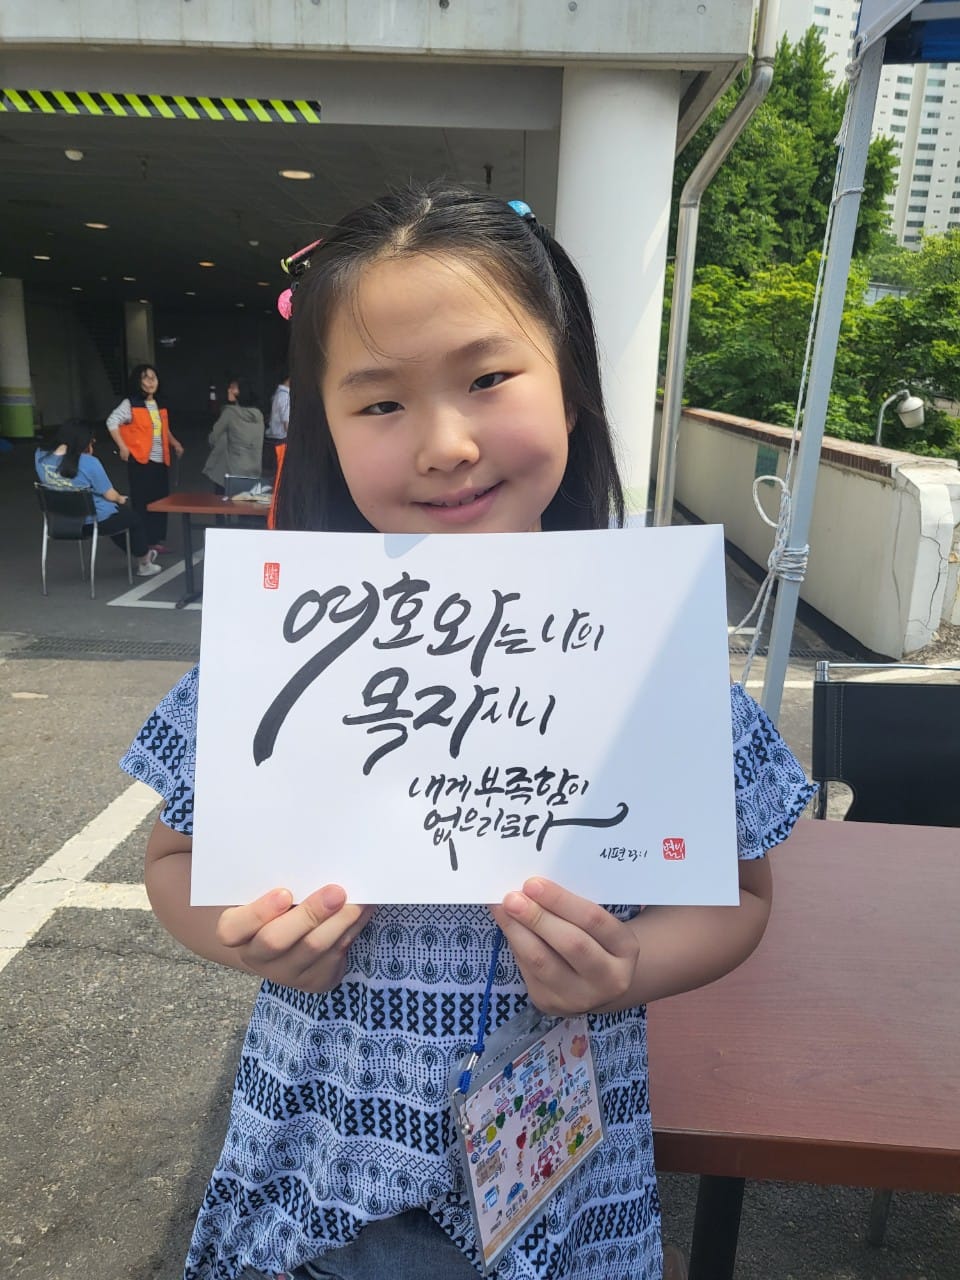 여호와는 나의
목자시니
내게 부족함이
없으리로다
시편 23:1